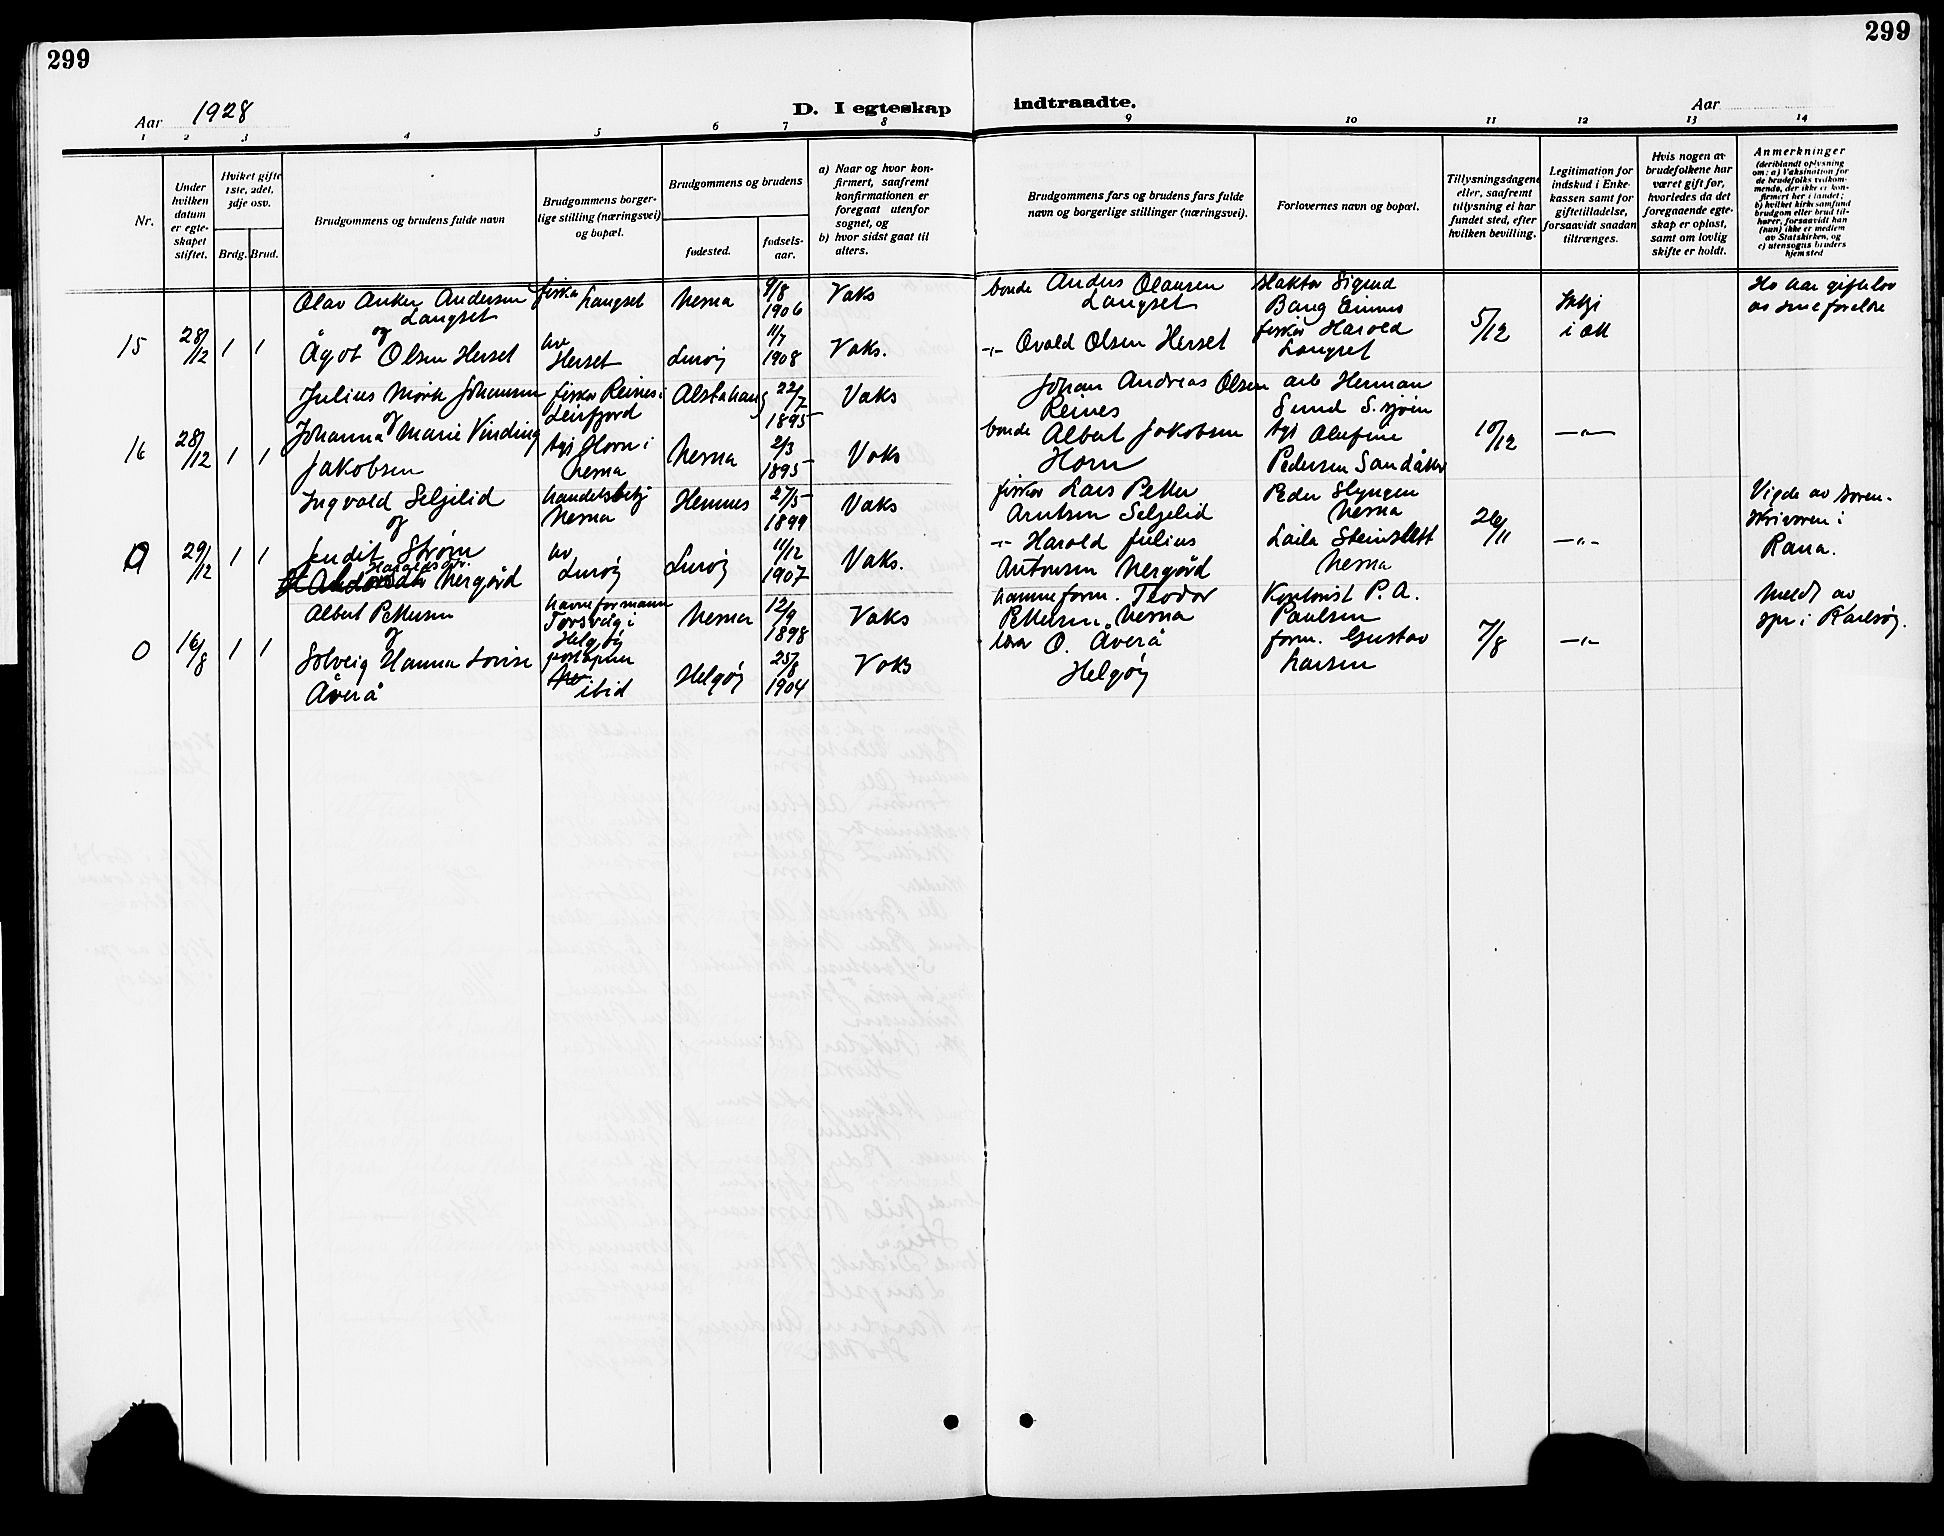 299
299
Aar 1928
D. I egteskap indtraadte.
Aar
1 2 3 4 5 6 7 8 9 10 11 12 13 14
Nr.
Under hvilken datum er egteskapet stiftet.
Hviket gifte 1ste, 2det, 3dje osv.
Brdg. Brud.
Brudgommens og brudens fulde navn
Brudgommens borgerlige stilling (næringsvei) og bopæl.
Brudgommens og brudens
fødested.
fødselsaar.
a) Naar og hvor konfirmert, saafremt konfirmationen er foregaat utenfor sognet, og
b) hvor sidst gaat til alters.
Brudgommens fars og brudens fars fulde navn og borgerlige stillinger (næringsvei).
Forlovernes navn og bopæl.
Tillysningsdagene eller, saafremt tillysning ei har fundet sted, efter hvilken bevilling.
Legitimation for indskud i Enkekassen samt for giftetilladelse, forsaavidt saadan tiltrænges.
Hvis nogen av brudefolkene har været gift før, hvorledes da det foregaaende egteskap er opløst, samt om lovlig skifte er holdt.
Anmerkninger
(deriblandt oplysning om: a) Vaksination for de brudefolks vedkommende, der ikke er konfirmert her i landet; b) hvilket kirkesamfund brudgom eller brud tilhører, forsaavidt han (hun) ikke er medlem av Statskirken, og c) utensogns bruders hjemsted
15 28/12 1 1
Olav Anker Andersen Langset
og
Ågot Olsen Herset
fisker Langset
av Herset
Nesna 9/8 1906 Vaks
Lurøy 11/7 1908 Vaks.
bonde Anders Olausen Langset
-"- Ovald Olsen Herset
Slakter Sigurd Bang Einnes
fisker Harold Langset
5/12
i ok
Ho har giftelov av sine foreldre
16 28/12 1 1
Julius Mörk Johansen
og
Johanna Marie Vinding Jakobsen
fisker Reines i Leirfjord
tys Horn i Nesna
Alstahaug 22/7 1895 Vaks
Nesna 2/3 1895 Vaks
Johan Andreas Olsen Reines
bonde Albert Jakobsen Horn
arb Herman Sund S. sjøen
tys Olufine Pedersen Sandåker
10/12
-"-
0 29/12 1 1
Ingvald Seljelid
og
Jendit Strøm Haraldsdtr. Nergård
handelsbetj Nesna
av Lurøy
Hemnes 27/5 1899 Vaks
Lurøy 11/12 1907 Vaks.
fisker Lars Petter Arntsen Seljelid
-"- Harold Julius Antonsen Nergård
Peder Slyngen Nesna
Laila Steinslett Nesna
26/11
-"-
Vigde av sorenskriveren i Rana.
0 16/8 1 1
Albert Pettersen
og
Solveig Hanna Lovise Åverå
havneformann Torsvåg i Helgøy
poståpner ibid
Nesna 12/9 1898 Vaks
Helgøy 25/8 1904 Vaks
havneform. Teodor Pettersen, Nesna
lærer O. Åverå Helgøy
Kontorist P. A. Paulsen
form. Gustav Larsen
7/8
-"-
Meldt av spr i Karlsøy.